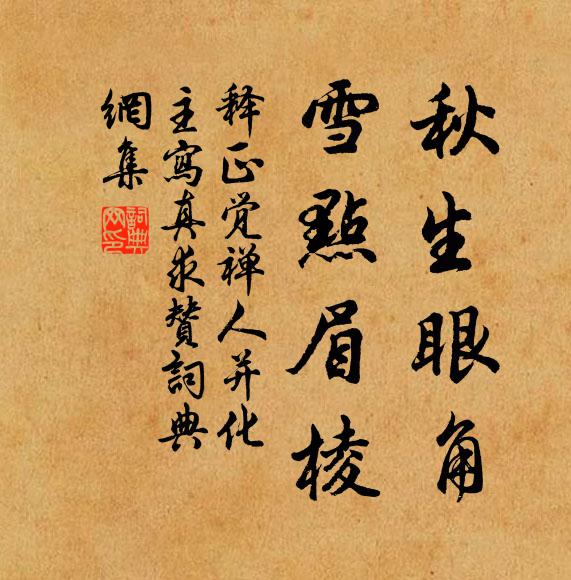 秋生眼角
雪點眉棱
释正觉禅人并化
主寫真求赞詞典
網集
詞典
网印